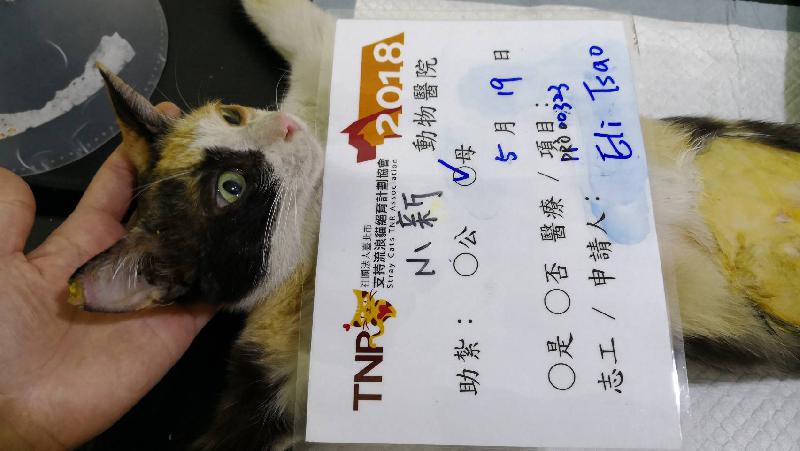 TNR 社團法人臺北市
支持流浪貓絕育計劃協會
Stray Cats TNR Association
2018
小新 動物醫院
助紮： 公 母 5 月 19 日
是 否 醫療 / 項目：
PRO 00323
志工 / 申請人： Eli Tsao